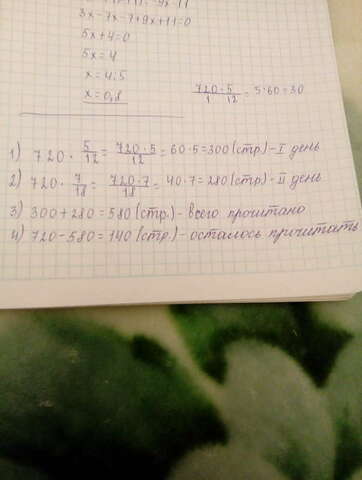 3x-7x-7+9x+11=0
5x+4=0
5x=4
x=4:5
x=0,8
720·5/1 12=5·60=30
1) 720·5/12=720·5/12=60·5=300(стр)-I день
2) 720·7/18=720·7/18=40·7=280(стр)-II день
3) 300+280=580(стр.)-всего прочитано
4) 720-580=140(стр.)-осталось прочитать